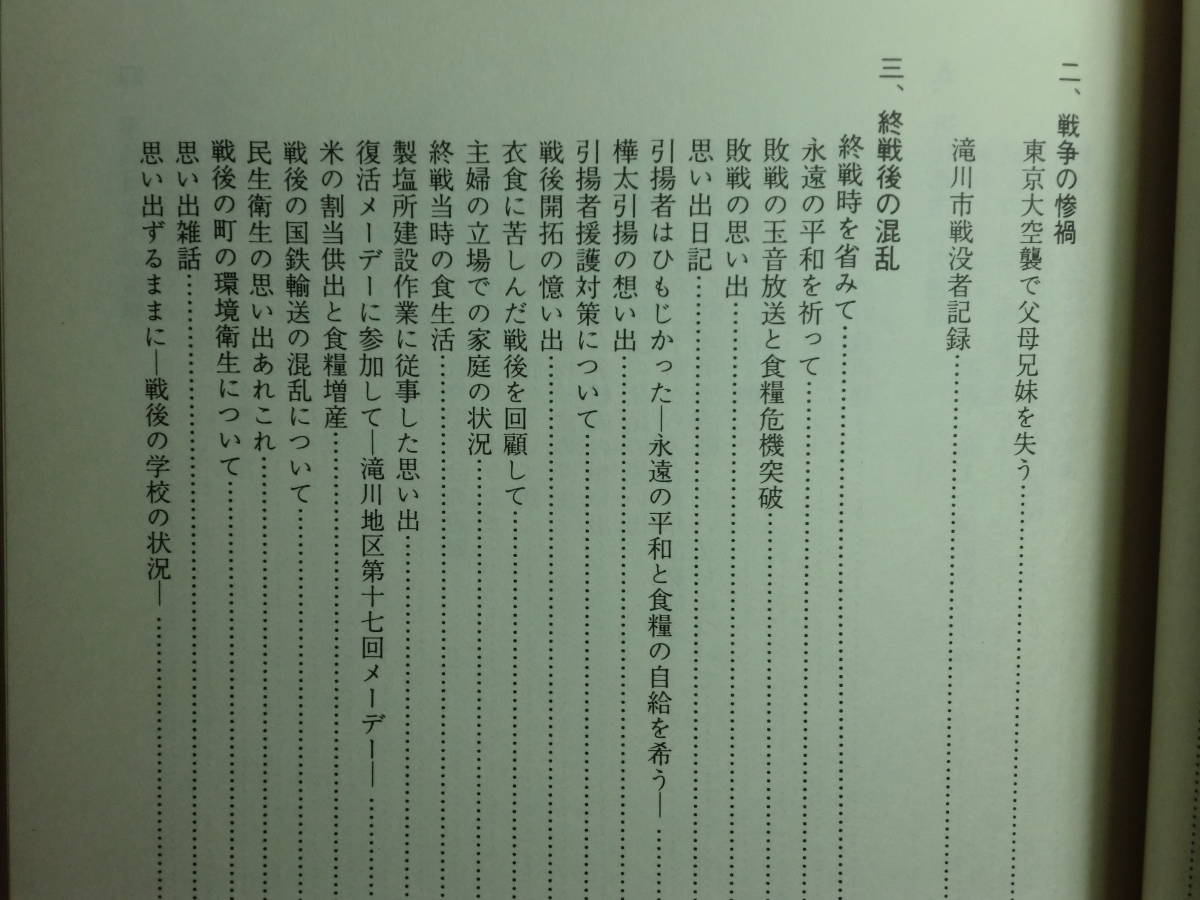 二、戦争の惨禍
東京大空襲で父母兄妹を失う……………………
滝川市戦没者記録……………………
三、終戦後の混乱
終戦時を省みて……………………
永遠の平和を祈って……………………
敗戦の玉音放送と食糧危機突破……………………
敗戦の思い出……………………
思い出日記……………………
引揚者はひもじかった―永遠の平和と食糧の自給を希う―……
樺太引揚の想い出……………………
引揚者援護対策について……………………
戦後開拓の憶い出……………………
衣食に苦しんだ戦後を回顧して……………………
主婦の立場での家庭の状況……………………
終戦当時の食生活……………………
製塩所建設作業に従事した思い出……………………
復活メーデーに参加して―滝川地区第十七回メーデー―………
米の割当供出と食糧増産……………………
戦後の国鉄輸送の混乱について……………………
民生衛生の思い出あれこれ……………………
戦後の町の環境衛生について……………………
思い出雑話……………………
思い出ずるままに―戦後の学校の状況―……………………